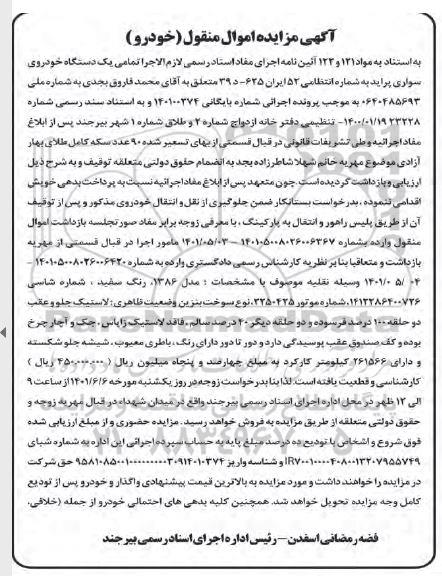 آگهی مزایده اموال منقول (خودرو)
به استناد به مواد ۱۲۱ و ۱۲۲ آئین نامه اجرای مفاد اسناد رسمی لازم الاجرا تمامی یک دستگاه خودروی
سواری پراید به شماره انتظامی ۵۲ ایران ۶۳۵- د ۳۹ متعلق به آقای محمد فاروق بجدی به شماره ملی
۰۶۴۰۴۸۵۶۹۳ به موجب پرونده اجرائی شماره بایگانی ۱۴۰۱۰۰۳۷۴ و به استناد سند رسمی شماره
۲۳۲۲۸ ۱۴۰۰/۰۱/۱۹- تنظیمی دفتر خانه ازدواج شماره ۲ و طلاق شماره ۱ شهر بیرجند پس از ابلاغ
مفاد اجرائیه و طی تشریفات قانونی در قبال قسمتی از بهای تسعیر شده ۹۰ عدد سکه کامل طلای بهار
آزادی موضوع مهریه خانم شهلا شاطرزاده بجد به انضمام حقوق دولتی متعلقه توقیف و به شرح ذیل
ارزیابی و بازداشت گردیده است. چون متعهد پس از ابلاغ مفاد اجرائیه نسبت به پرداخت بدهی خویش
اقدامی ننموده، بدرخواست بستانکار ضمن جلوگیری از نقل و انتقال خودروی مذکور و پس از توقیف
آن از طریق پلیس راهور و انتقال به پارکینگ، با معرفی زوجه برابر مفاد صورتجلسه بازداشت اموال
منقول وارده بشماره ۱۴۰۱۰۵۰۰۸۰۲۶۰۰۶۳۶۷ – ۱۴۰۱/۰۵/۰۳ مامور اجرا در قبال قسمتی از مهریه
بازداشت و متعاقبا بنا بر نظریه کارشناس رسمی دادگستری وارده به شماره ۱۴۰۱۰۵۰۰۸۰۲۶۰۰۶۴۲۰ –
۰۴ /۱۴۰۱/۰۵ وسیله نقلیه موصوف با مشخصات : مدل ۱۳۸۶، رنگ سفید ، شماره شاسی
۱۴۱۲۲۸۶۴۰۰۷۲۶، شماره موتور ۲۲۵۰۴۲۵، نوع سوخت بنزین وضعیت ظاهری: لاستیک جلو و عقب
دو حلقه ۱۰۰ درصد فرسوده و دو حلقه دیگر ۴۰ درصد سالم ، فاقد لاستیک زاپاس ، جک و آچار چرخ
بوده و کف صندوق عقب پوسیدگی دارد و دور تا دور دارای رنگ، باطری معیوب ، شیشه جلو شکسته
و دارای ۲۶۱۵۶۶ کیلومتر کارکرد به مبلغ چهارصد و پنجاه میلیون ریال ( ۴۵۰,۰۰۰,۰۰۰ ریال )
کارشناسی و قطعیت یافته است. لذا بنا بدرخواست زوجه در روز یکشنبه مورخه ۱۴۰۱/۶/۶ از ساعت ۹
الی ۱۲ ظهر در محل اداره اجرای اسناد رسمی بیرجند واقع در میدان شهداء در قبال مهریه زوجه و
حقوق دولتی متعلقه از طریق مزایده به فروش خواهد رسید . مزایده حضوری و از مبلغ ارزیابی شده
فوق شروع و اشخاص با تودیع ده درصد مبلغ پایه به حساب سپرده اجرائی این اداره به شماره شبای
و شناسه واریز حق شرکت
در مزایده را خواهند داشت و مورد مزایده به بالاترین قیمت پیشنهادی واگذار و خودرو پس از تودیع
کامل وجه مزایده تحویل خواهد شد. همچنین کلیه بدهی های احتمالی خودرو از جمله (خلافی،
فضه رمضانی اسفدن – رئیس اداره اجرای اسناد رسمی بیرجند